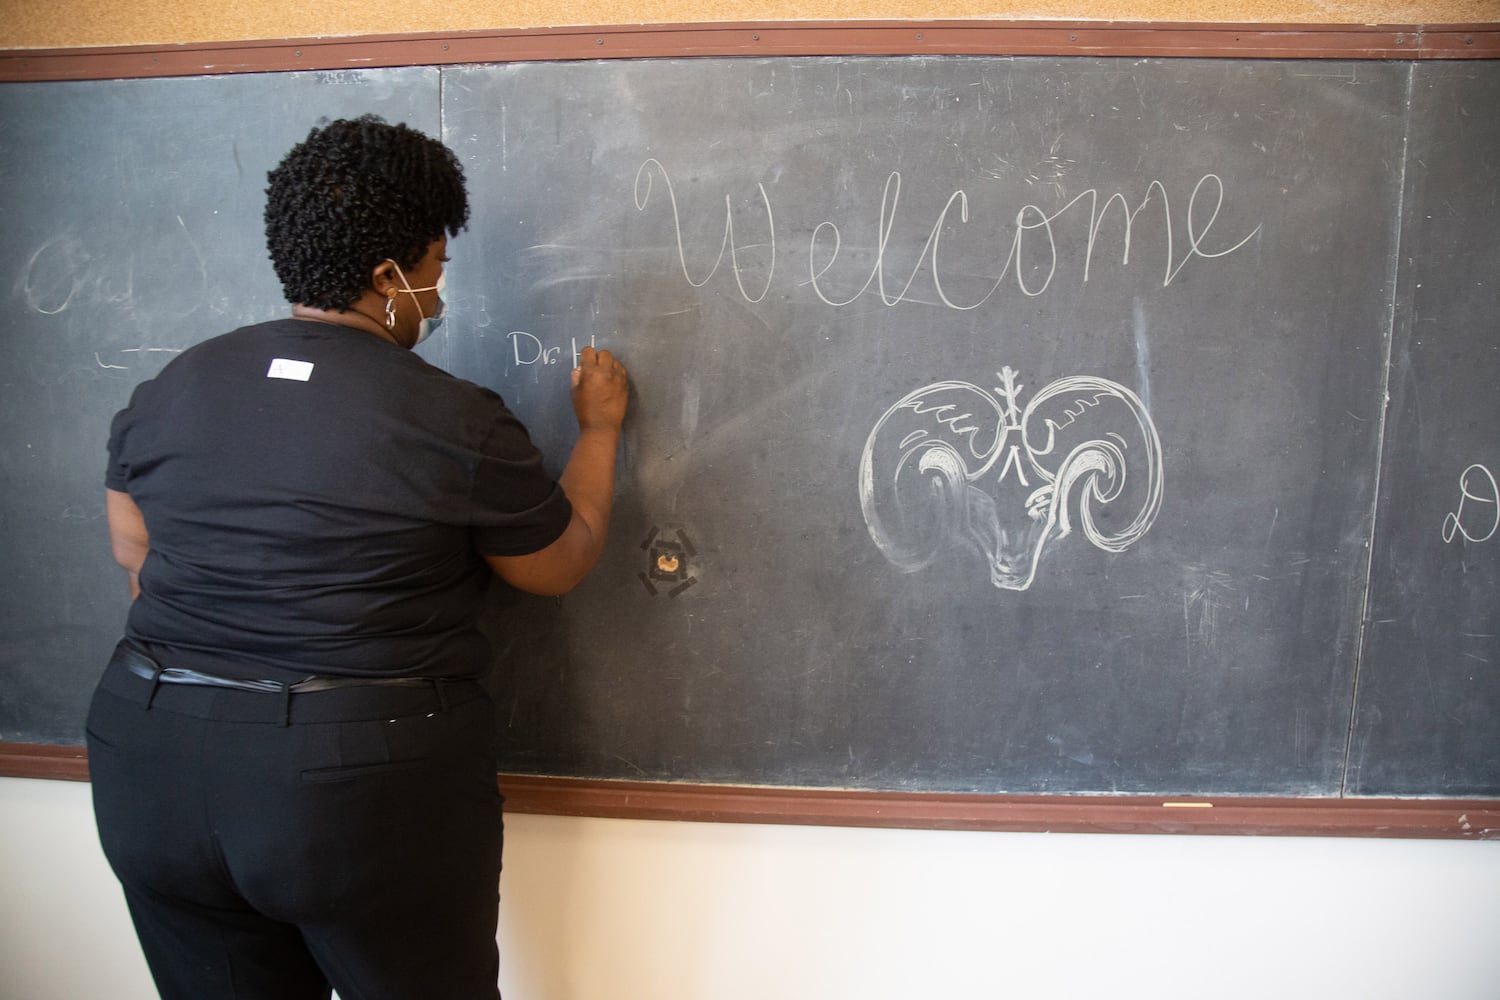 Welcome
Dr. H
D